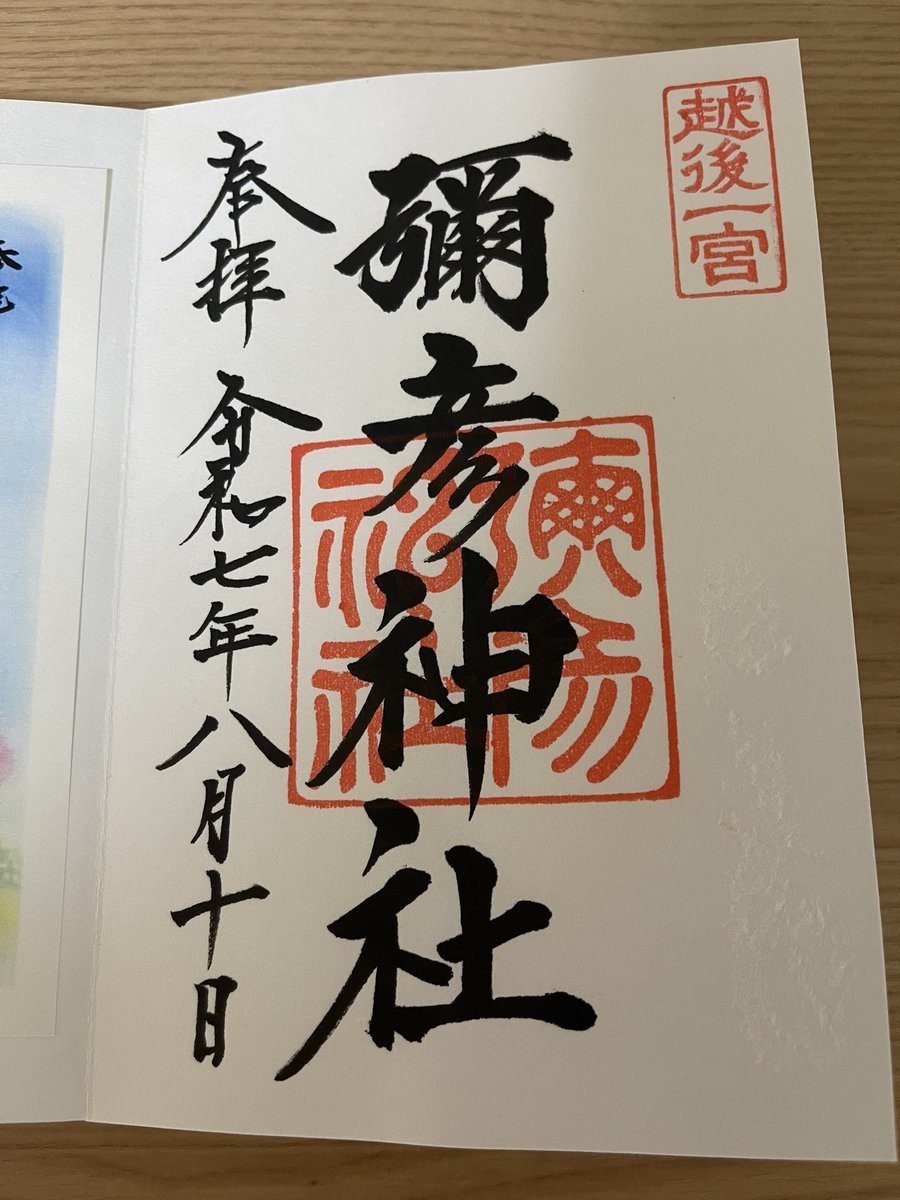 越後一宮
彌彦神社
彌彦神社
奉拝
令和七年八月十日